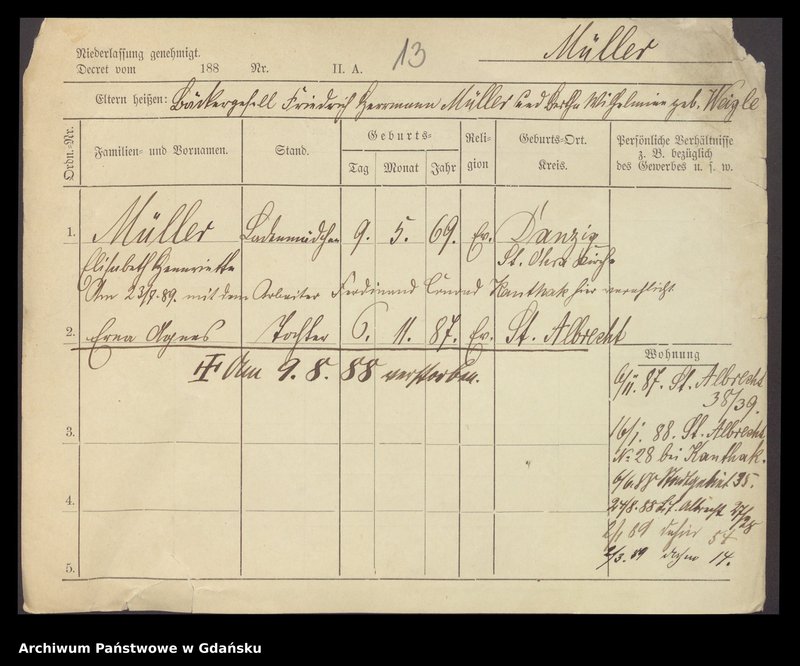 Niederlassung genehmigt.
Decret vom 188 Nr. II. A.
13
Müller
Eltern heißen: Bäckergesell Friedrich Herrmann Müller und Bertha Wilhelmine geb. Weigle
Ordn.-Nr.
Familien- und Vornamen.
Stand.
Geburts-
Tag Monat Jahr
Religion
Geburts-Ort.
Kreis.
Persönliche Verhältnisse
z. B. bezüglich
des Gewerbes u. s. w.
1. Müller Ladenmädchen 9. 5. 69. Ev. Danzig
Elisabeth Henriette St. Kirche
Am 23/8. 89. mit dem Arbeiter Ferdinand Kanthak hier verehlicht.
2. Erna Agnes Tochter 6. 11. 87. Ev. St. Albrecht
Am 9. 8. 88 verstorben.
Wohnung
6/11. 87. St. Albrecht
38/39.
16/1. 88. St. Albrecht
No 28 bei Kanthak.
Stadtgebiet 35.
24/8. 88 St. Albrecht 27/28
2/1 89 54
2/3. 89 14.
3.
4.
5.
Archiwum Państwowe w Gdańsku